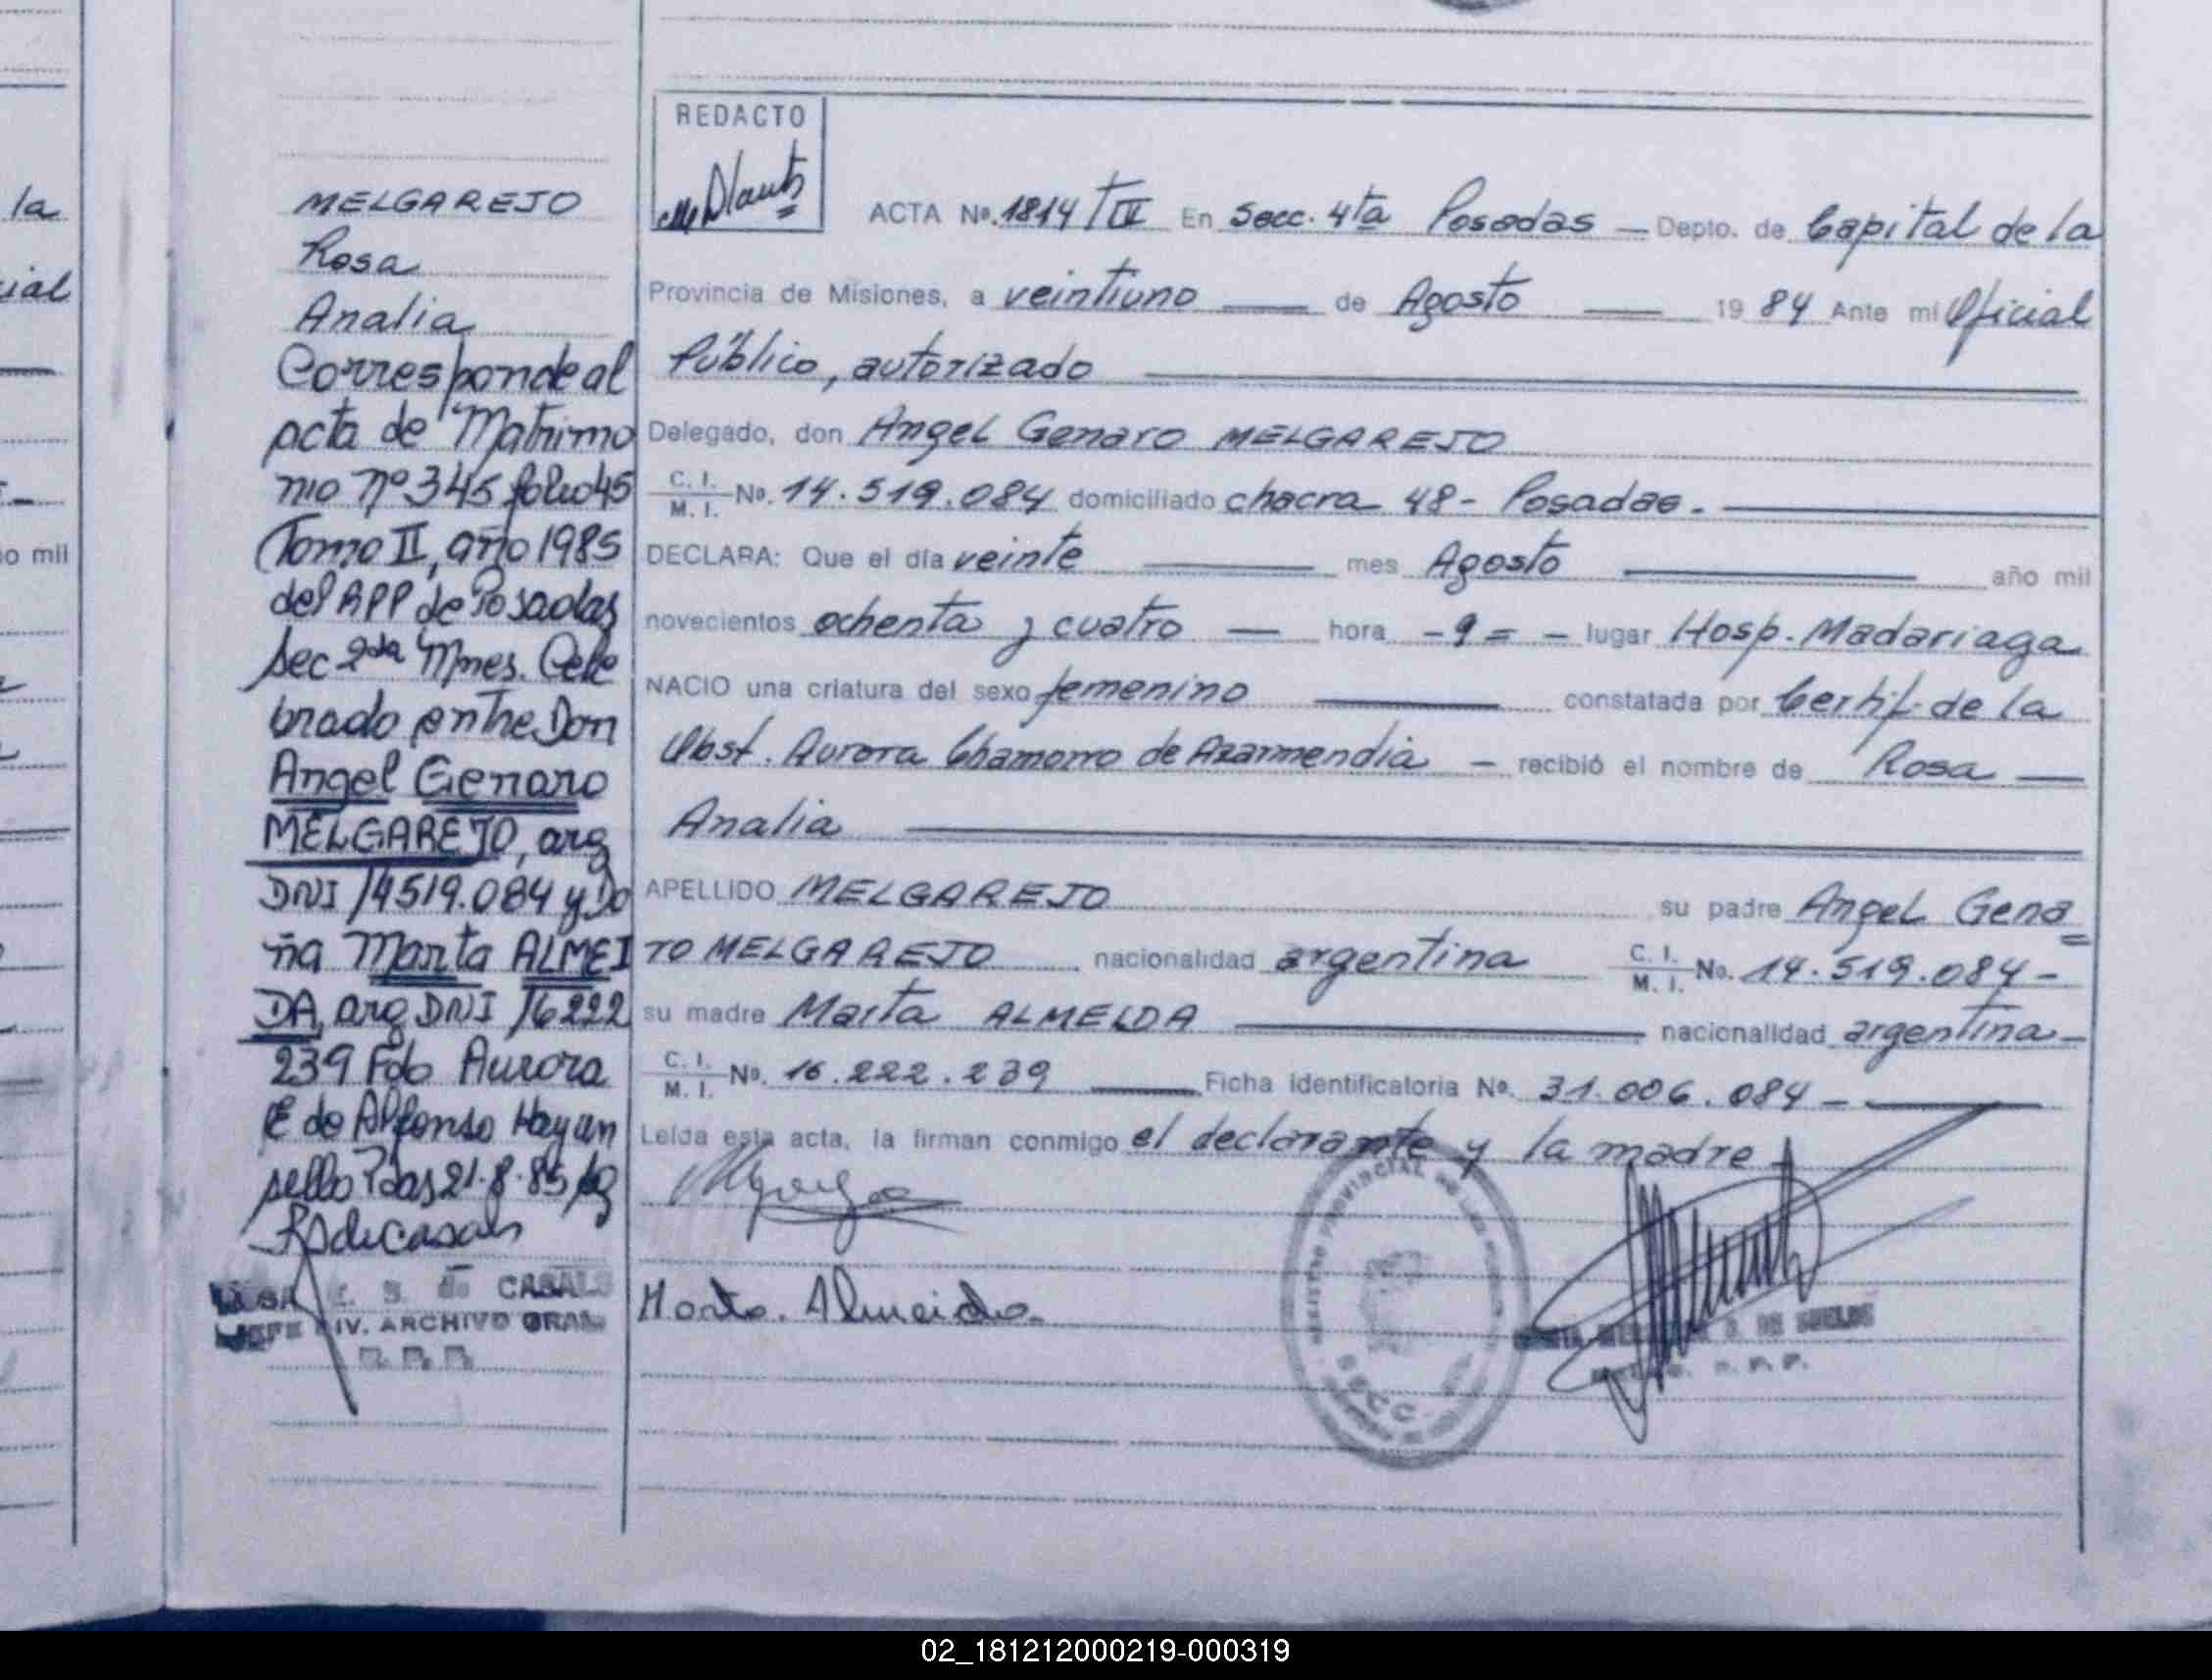 la
ial
o mil
MELGAREJO
Rosa
Analia
Corresponde al
acta de Matrimo
nio nº 345 folio 45
Tomo II, año 1985
del RPP de Posadas
Sec 2da Mnes. Cele
brado entre Don
Angel Genaro
MELGAREJO, arg
DNI 14519.084 y Do
ña Marta ALMEI
DA, arg DNI 16222
239 Fdo Aurora
E de Alfonso Hay un
sello Pdas 21.8.85
S. de CASALS
JEFE DIV. ARCHIVO GRAL
R. P. P.
REDACTO
ACTA Nº. 1814 TIV En Secc. 4ta Posadas — Depto. de Capital de la
Provincia de Misiones, a veintiuno — de Agosto — 19 84 Ante mi Oficial
Público, autorizado
Delegado, don Angel Genaro MELGAREJO
C. I. / M. I. Nº. 14.519.084 domiciliado chacra 48 - Posadas. —
DECLARA: Que el día veinte — mes Agosto — año mil
novecientos ochenta y cuatro — hora - 9 = - lugar Hosp. Madariaga
NACIO una criatura del sexo femenino — constatada por Certif. de la
Obst. Aurora Chamorro de Azarmendia — recibió el nombre de Rosa —
Analia —
APELLIDO MELGAREJO su padre Angel Gena=
ro MELGAREJO nacionalidad argentina C. I. / M. I. No. 14.519.084 -
su madre Marta ALMEIDA — nacionalidad argentina -
C. I. / M. I. Nº. 16.222.239 — Ficha identificatoria Nº. 31.006.084 - —
Leída esta acta, la firman conmigo el declarante y la madre
Marta. Almeida.
REGISTRO PROVINCIAL DE LAS PERSONAS
S. DE SUELDO
R. P. P.
02_181212000219-000319